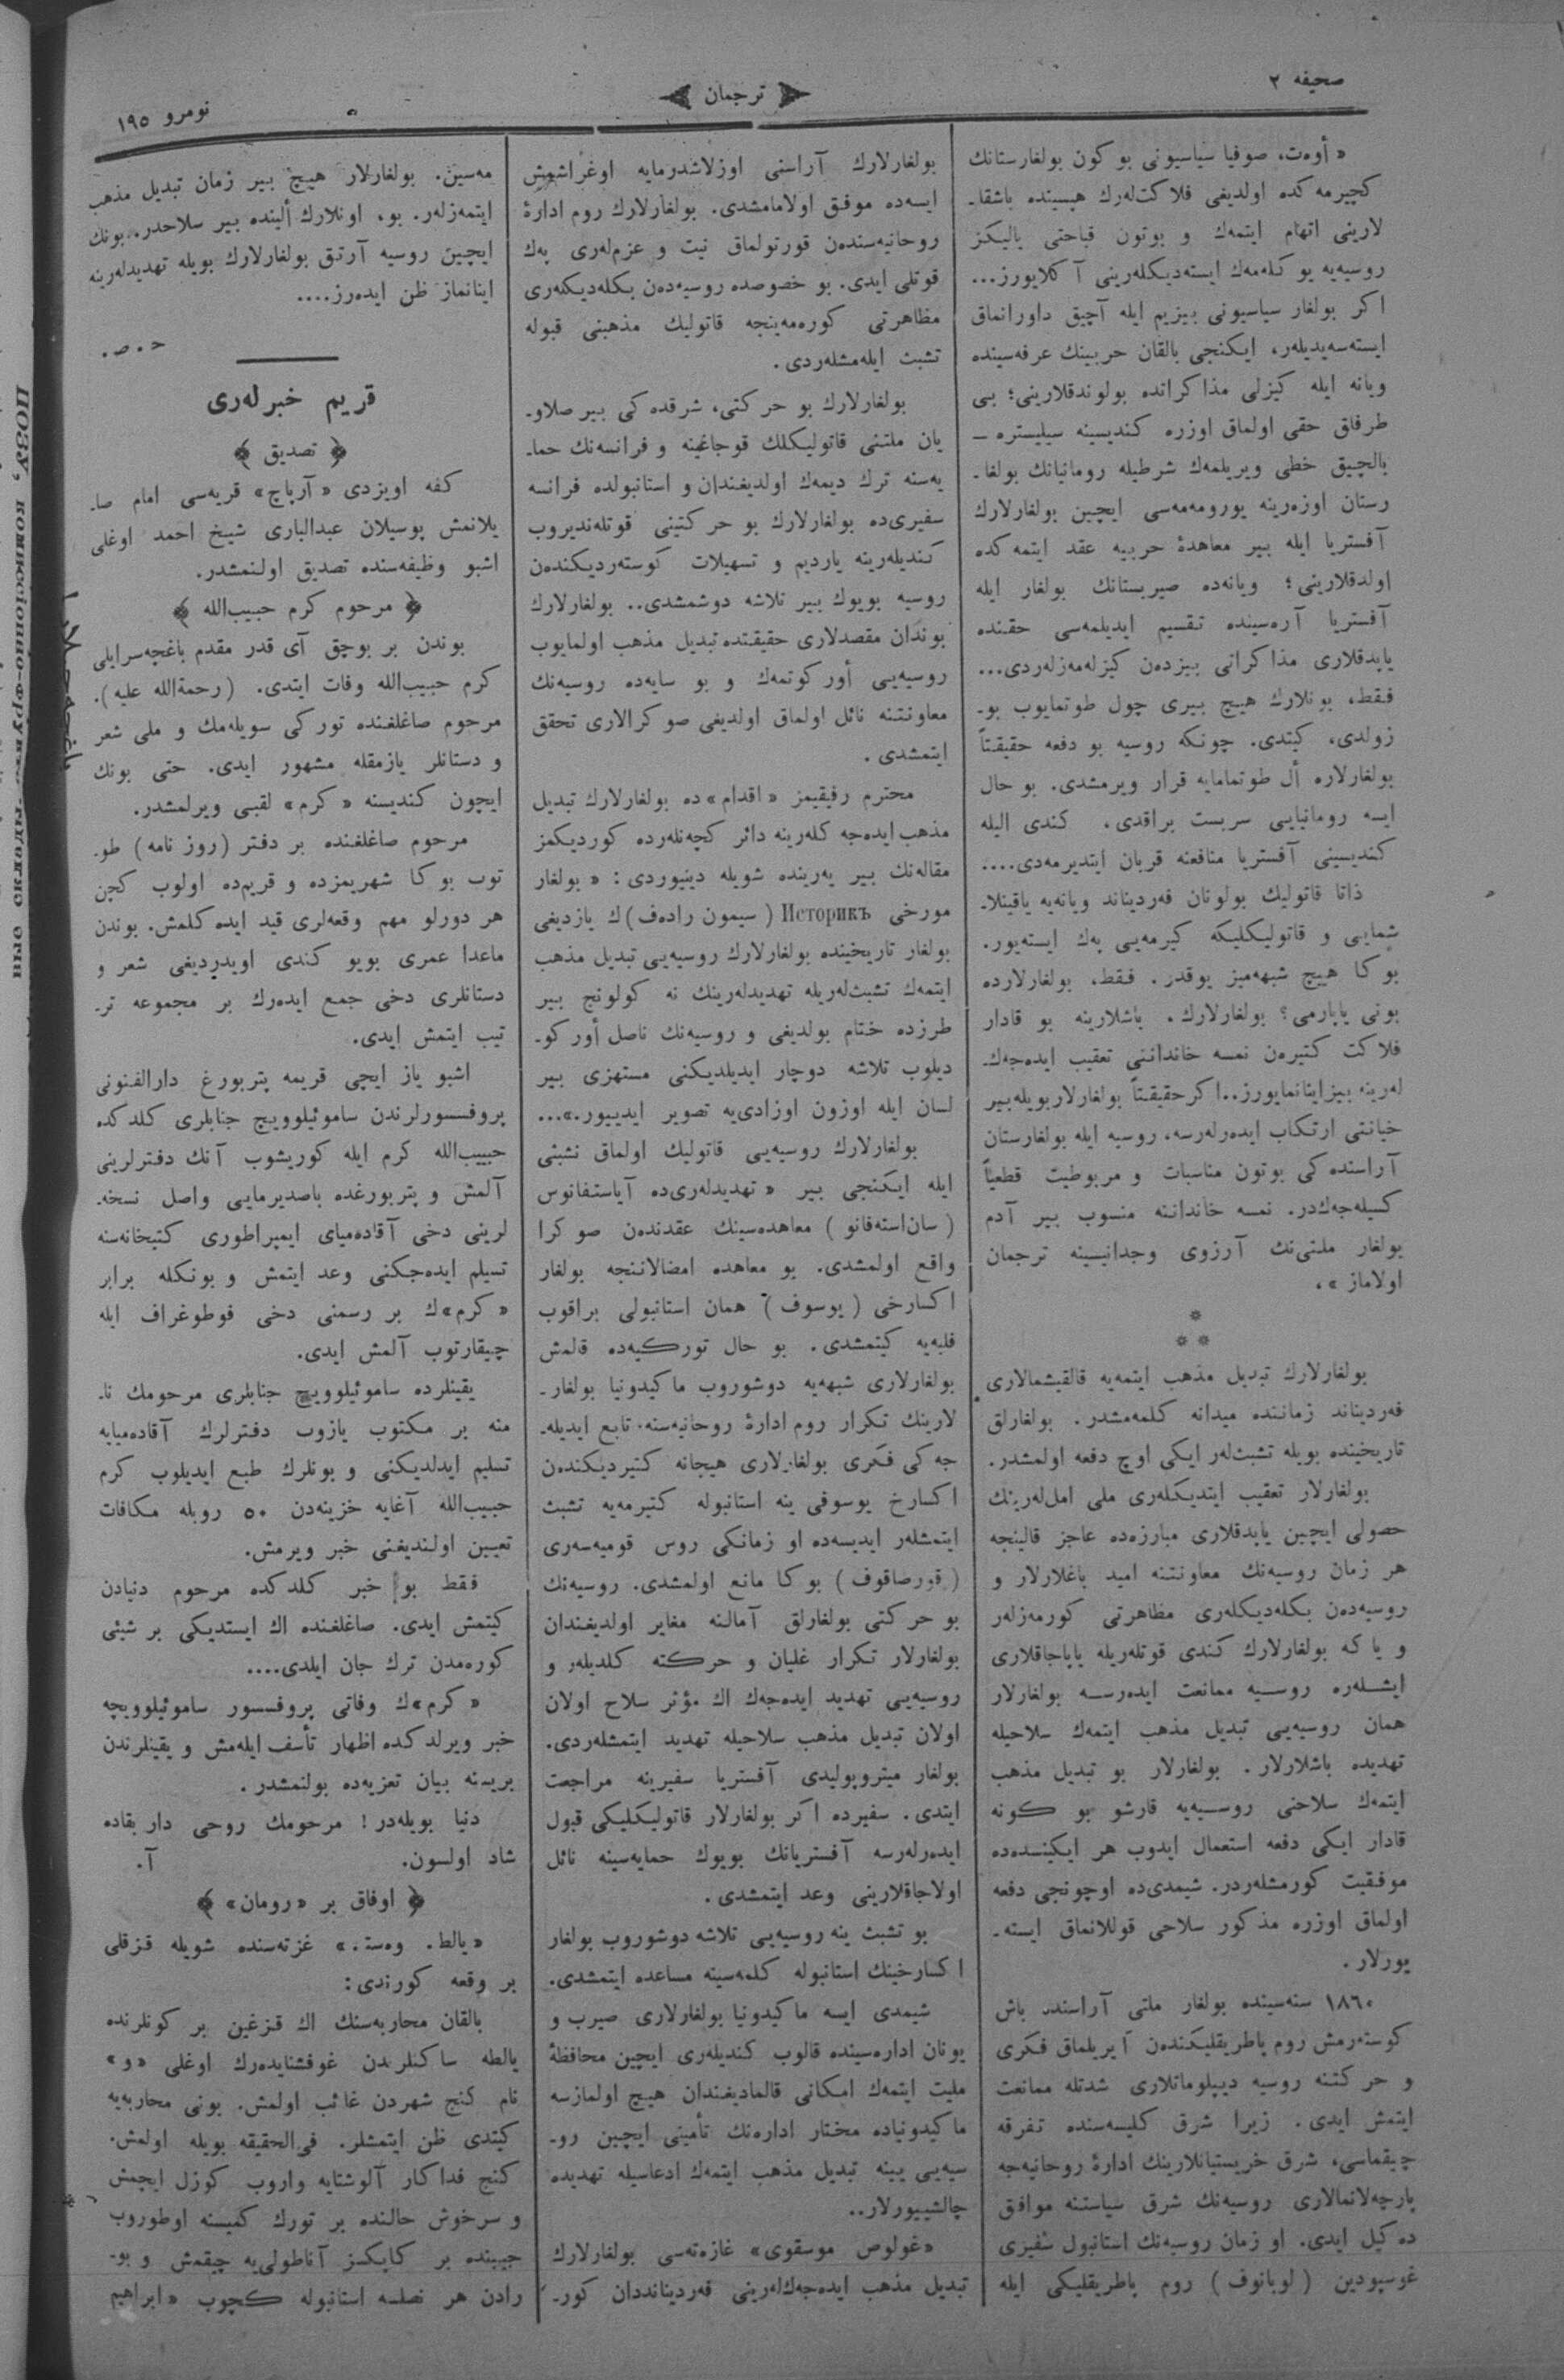 صحیفه ٢
ترجمان
نومرو ١٩٥
« أوەت، صوفیا سیاسیونی بو كون بولغارستانك
كچیرمه كده اولدیغی فلاكت‌لەرك هپسینده باشقا-
لارینی اتهام ایتمەك و بوتون قباحتی یالیكز
روسیه‌یه یو كلەمەك ایستەدیكلەرینی آ كلایورز...
ا كر بولغار سیاسیونی بیزیم ایله آچیق داورانماق
ایستەسەیدیلەر، ایكنجی بالقان حربینك عرفه‌سینده
ویانه ایله كیزلی مذاكراتده بولوندقلارینی؛ بی
طرفلق حقی اولماق اوزره كندیسینه سیلیستره —
بالچیق خطی ویریلمەك شرطیله رومانیانك بولغا-
رستان اوزەرینه یورومەمه‌سی ایچین بولغارلارك
آفستریا ایله بیر معاهدۀ حربیه عقد ایتمه كده
اولدقلارینی؛ ویانەده صیربستانك بولغار ایله
آفستریا آرەسینده تقسیم ایدیلمه‌سی حقنده
یاپدقلاری مذاكراتی بیزدەن كیزلەمەزلەردی...
فقط، بونلارك هیچ بیری چول طوتمایوب بو-
زولدی، كیتدی. چونكه روسیه بو دفعه حقیقتاً
بولغارلاره أل طوتمامایه قرار ویرمشدی. بو حال
ایسه رومانیایی سربست براقدی، كندی الیله
كندیسینی آفستریا منافعنه قربان ایتدیرمەدی....
ذاتا قاتولیك بولونان فەردیناند ویانەیه یاقینلا-
شمایی و قاتولیكلیكه كیرمەیی پەك ایستەیور.
بو كا هیچ شبهەمیز یوقدر. فقط، بولغارلارده
بونی یاپارمی؟ بولغارلارك، باشلارینه بو قادار
فلاكت كتیرەن نمسه خاندانی تعقیب ایدەجەك-
لەرینه بیز اینانمایورز.. ا كر حقیقتاً بولغارلار بویله بیر
خیانتی ارتكاب ایدەرلەرسه، روسیه ایله بولغارستان
آراسنده كی بوتون مناسبات و مربوطیت قطعیاً
كسیلەجەك‌در. نمسه خاندانه منسوب بیر آدم
بولغار ملتی‌نك آرزوی وجدانیسینه ترجمان
اولاماز »،
*
* *
بولغارلارك تبدیل مذهب ایتمەیه قالقیشمالاری
فەردیناند زماننده میدانه كلمەمشدر. بولغارلق
تاریخینده بویله تشبث‌لەر ایكی اوچ دفعه اولمشدر.
بولغارلار تعقیب ایتدیكلەری ملی امل‌لەرینك
حصولی ایچین یاپدقلاری مبارزەده عاجز قالینجه
هر زمان روسیەنك معاونتنه امید باغلارلار و
روسیەدەن بكلەدیكلەری مظاهرتی كورمەزلەر
و یا كه بولغارلارك كندی قوتلەریله یاپاجاقلاری
ایشلەره روسیه ممانعت ایدەرسه بولغارلار
همان روسیەیی تبدیل مذهب ایتمەك سلاحیله
تهدیده باشلارلار. بولغارلار بو تبدیل مذهب
ایتمەك سلاحنی روسیەیه قارشو بو كونه
قادار ایكی دفعه استعمال ایدوب هر ایكیسندەده
موفقیت كورمشلەردر. شیمدی‌ده اوچونجی دفعه
اولماق اوزره مذكور سلاحی قوللانماق ایسته-
یورلار.
١٨٦٠ سنه‌سینده بولغار ملتی آراسنده باش
كوستەرمش روم پاطریقلیكندەن آیریلماق فكری
و حركتنه روسیه دیپلوماتلاری شدتله ممانعت
ایتمش ایدی. زیرا شرق كلیسه‌سنده تفرقه
چیقماسی، شرق خریستیانلارینك ادارۀ روحانیه‌جه
پارچەلانمالاری روسیه‌نك شرق سیاستنه موافق
دەكیل ایدی. او زمان روسیەنك استانبول سفیری
غوسپودین (لوبانوف) روم پاطریقلیكی ایله
بولغارلارك آراسنی اوزلاشدرمایه اوغراشمش
ایسەده موفق اولامامشدی. بولغارلارك روم ادارۀ
روحانیه‌سندەن قورتولماق نیت و عزم‌لەری پەك
قوتلی ایدی. بو خصوصده روسیەدەن بكلەدیكلەری
مظاهرتی كورەمەینجه قاتولیك مذهبنی قبوله
تشبث ایلەمشلەردی.
بولغارلارك بو حركتی، شرقده كی بیر صلاو-
یان ملتنی قاتولیكلك قوجاغینه و فرانسەنك حما-
یەسنه ترك دیمەك اولدیغندان و استانبولده فرانسه
سفیری‌ده بولغارلارك بو حركتینی قوتلەندیروب
كندیلەرینه یاردیم و تسهیلات كوستەردیكندەن
روسیه بویوك بیر تلاشه دوشمشدی.. بولغارلارك
بوندان مقصدلاری حقیقتده تبدیل مذهب اولمایوب
روسیەیی أور كوتمەك و بو سایەده روسیه‌نك
معاونتنه نائل اولماق اولدیغی صو كرالاری تحقق
ایتمشدی.
محترم رفیقیمز « اقدام »ده بولغارلارك تبدیل
مذهب ایدەجه كلەرینه دائر كچەنلەرده كوردیكمز
مقالەنك بیر یەرینده شویله دینیوردی: « بولغار
مورخی Историкъ (سیمون رادەف)ك یازدیغی
بولغار تاریخینده بولغارلارك روسیەیی تبدیل مذهب
ایتمەك تشبث‌لەریله تهدیدلەرینك نه كولونج بیر
طرزده ختام بولدیغی و روسیەنك ناصل أوركو-
دیلوب تلاشه دوچار ایدیلدیكنی مستهزی بیر
لسان ایله اوزون اوزادی‌یه تصویر ایدیییور.»...
بولغارلارك روسیەیی قاتولیك اولماق تشبثی
ایله ایكنجی بیر « تهدیدلەری‌ده آیاستفانوس
(سان‌استەفانو) معاهده‌سینك عقدندەن صو كرا
واقع اولمشدی. بو معاهده امضالاننجه بولغار
ا كسارخی (یوسوف) همان استانبولی براقوب
فلبەیه كیتمشدی. بو حال توركیەده قالمش
بولغارلاری شبهەیه دوشوروب ماكیدونیا بولغار-
لارینك تكرار روم ادارۀ روحانیه‌سنه تابع ایدیله-
جه كی فكری بولغارلاری هیجانه كتیردیكندەن
ا كسارخ یوسوفی ینه استانبوله كتیرمەیه تشبث
ایتمشلەر ایدیسەده او زمانكی روس قومیسەری
(قورصاقوف) بو كا مانع اولمشدی. روسیه‌نك
بو حركتی بولغارلق آمالنه مغایر اولدیغندان
بولغارلار تكرار غلیان و حركته كلدیلەر و
روسیەیی تهدید ایدەجەك اك مؤثر سلاح اولان
اولان تبدیل مذهب سلاحیله تهدید ایتمشلەردی.
بولغار میتروپولیدی آفستریا سفیرینه مراجعت
ایتدی. سفیرده ا كر بولغارلار قاتولیكلیكی قبول
ایدەرلەرسه آفستریانك بویوك حمایه‌سینه نائل
اولاجاقلارینی وعد ایتمشدی.
بو تشبث ینه روسیەیی تلاشه دوشوروب بولغار
ا كسارخینك استانبوله كلمه‌سینه مساعده ایتمشدی.
شیمدی ایسه ماكیدونیا بولغارلاری صیرب و
یونان ادارەسینده قالوب كندیلەری ایچین محافظۀ
ملیت ایتمەك امكانی قالمادیغندان هیچ اولمازسه
ماكیدونیاده مختار ادارەنك تأمینی ایچین رو-
سیەیی یینه تبدیل مذهب ایتمەك ادعاسیله تهدیده
چالشییورلار..
«غولوص موسقوی» غازەتەسی بولغارلارك
تبدیل مذهب ایدەجەك‌لەرینی فەردیناندان كور-
مه‌سین. بولغارلار هیچ بیر زمان تبدیل مذهب
ایتمەزلەر. بو، اونلارك ألینده بیر سلاحدر. بونك
ایچین روسیه آرتق بولغارلارك بویله تهدیدلەرینه
اینانماز ظن ایدەرز....
ح. ص.
قریم خبرلەری
﴿ تصدیق ﴾
كفه اویزدی « آرپاچ » قریه‌سی امام صا-
یلانمش پوسیلان عبدالباری شیخ احمد اوغلی
اشبو وظیفەسنده تصدیق اولنمشدر.
﴿ مرحوم كرم حبیب‌الله ﴾
بوندن بر بوچق آی قدر مقدم باغچه‌سرایلی
كرم حبیب‌الله وفات ایتدی. (رحمةالله علیه).
مرحوم صاغلغنده توركی سویلەمك و ملی شعر
و دستانلر یازمقله مشهور ایدی. حتی بونك
ایچون كندیسنه « كرم » لقبی ویرلمشدر.
مرحوم صاغلغنده بر دفتر (روز نامه) طو-
توب بو كا شهریمزده و قریم‌ده اولوب كچن
هر دورلو مهم وقعەلری قید ایده كلمش. بوندن
ماعدا عمری بویو كندی اویدردیغی شعر و
دستانلری دخی جمع ایدەرك بر مجموعه تر-
تیب ایتمش ایدی.
اشبو یاز ایچی قریمه پتربورغ دارالفنونی
پروفسسورلرندن ساموئیلوویچ جنابلری كلدكده
حبیب‌الله كرم ایله كوریشوب آنك دفترلرینی
آلمش و پتربورغده باصدیرمایی واصل نسخه-
لرینی دخی آقادەمیای ایمپراطوری كتبخانه‌سنه
تسیلم ایدەجكنی وعد ایتمش و بونكله برابر
« كرم »ك بر رسمنی دخی فوطوغراف ایله
چیقارتوب آلمش ایدی.
یقینلرده ساموئیلوویچ جنابلری مرحومك نا-
منه بر مكتوب یازوب دفترلرك آقادەمیایه
تسلیم ایدلدیكنی و بونلرك طبع ایدیلوب كرم
حبیب‌الله آغایه خزینەدن ٥٠ روبله مكافات
تعیین اولندیغنی خبر ویرمش.
فقط بو خبر كلدكده مرحوم دنیادن
كیتمش ایدی. صاغلغنده اك ایستدیكی بر شیئی
كورەمدن ترك جان ایلدی....
« كرم »ك وفاتی پروفسسور ساموئیلوویچه
خبر ویرلدكده اظهار تأسف ایلەمش و یقینلرندن
برینه بیان تعزیەده بولنمشدر.
دنیا بویلەدر! مرحومك روحی دار بقاده
شاد اولسون. آ.
﴿ اوفاق بر «رومان» ﴾
«یالط. وەستـ.» غزته‌سنده شویله قزقلی
بر وقعه كورندی:
بالقان محاربه‌سنك اك قزغین بر كونلرنده
یالطه ساكنلرندن غوفشنایدەرك اوغلی «و»
نام كنج شهردن غائب اولمش. بونی محاربەیه
كیتدی ظن ایتمشلر. فی‌الحقیقه بویله اولمش.
كنج فداكار آلوشتایه واروب كوزل ایچمش
و سرخوش حالنده بر تورك كمیسنه اوطوروب
جیبنده بر كاپكسز آناطولی‌یه چیقمش و بو-
رادن هر نصلسه استانبوله كچوب « ابراهیم